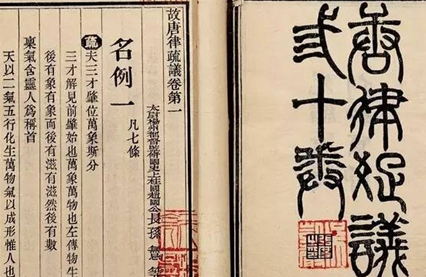 唐律疏議
弎十卷
故唐律疏議卷第一
太尉揚州都督監修國史上柱國趙國公長孫無
名例一 凡七條
疏夫三才肇位萬象斯分
三才解見前肇始也萬象萬物也左傳物生
後有象有象而後有滋有滋然後有數
稟氣含靈人爲稱首
天以二氣五行化生萬物氣以成形惟人也